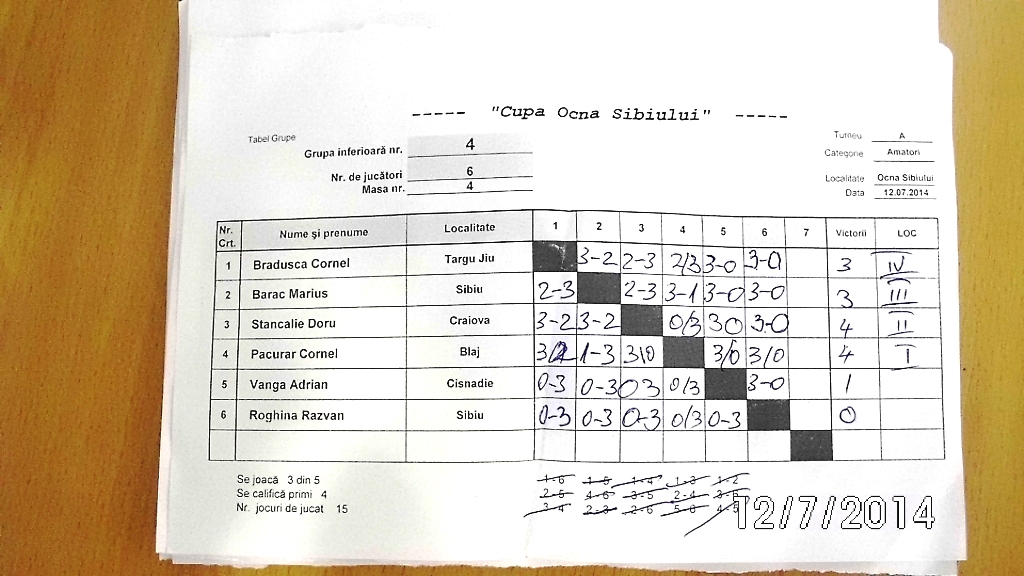 ----- "Cupa Ocna Sibiului" -----
Tabel Grupe
Grupa inferioară nr. 4
Nr. de jucători 6
Masa nr. 4
Turneu A
Categorie Amatori
Localitate Ocna Sibiului
Data 12.07.2014
Nr. Crt. Nume şi prenume Localitate 1 2 3 4 5 6 7 Victorii LOC
1 Bradusca Cornel Targu Jiu 3-2 2-3 2/3 3-0 3-0 3 IV
2 Barac Marius Sibiu 2-3 2-3 3-1 3-0 3-0 3 III
3 Stancalie Doru Craiova 3-2 3-2 0/3 30 3-0 4 II
4 Pacurar Cornel Blaj 3/2 1-3 3/0 3/0 3/0 4 I
5 Vanga Adrian Cisnadie 0-3 0-3 03 0/3 3-0 1
6 Roghina Razvan Sibiu 0-3 0-3 0-3 0/3 0-3 0
Se joacă 3 din 5
Se califică primi 4
Nr. jocuri de jucat 15
1-6 1-5 1-4 1-3 1-2
2-5 4-6 3-5 2-4 3-6
3-4 2-3 2-6 5-6 4-5
12/7/2014